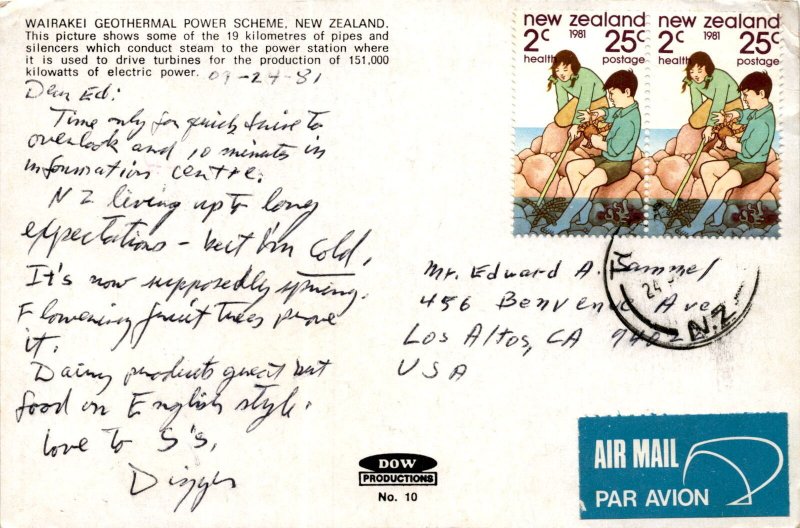 WAIRAKEI GEOTHERMAL POWER SCHEME, NEW ZEALAND.
This picture shows some of the 19 kilometres of pipes and
silencers which conduct steam to the power station where
it is used to drive turbines for the production of 151,000
kilowatts of electric power.
09-24-81
Dear Ed:
Time only for quick drive to
overlook and 10 minutes in
information centre.
NZ living up to long
expectations - but I'm cold.
It's now supposedly spring.
Flowering fruit trees prove
it.
Dairy products great but
food on English style.
Love to S's,
new zealand
2c 1981 25c
health postage
new zealand
2c 1981 25c
health postage
Mr. Edward A.
456 Benvenue Ave
Los Altos, CA
USA
24
N.Z.
DOW
PRODUCTIONS
No. 10
AIR MAIL
PAR AVION